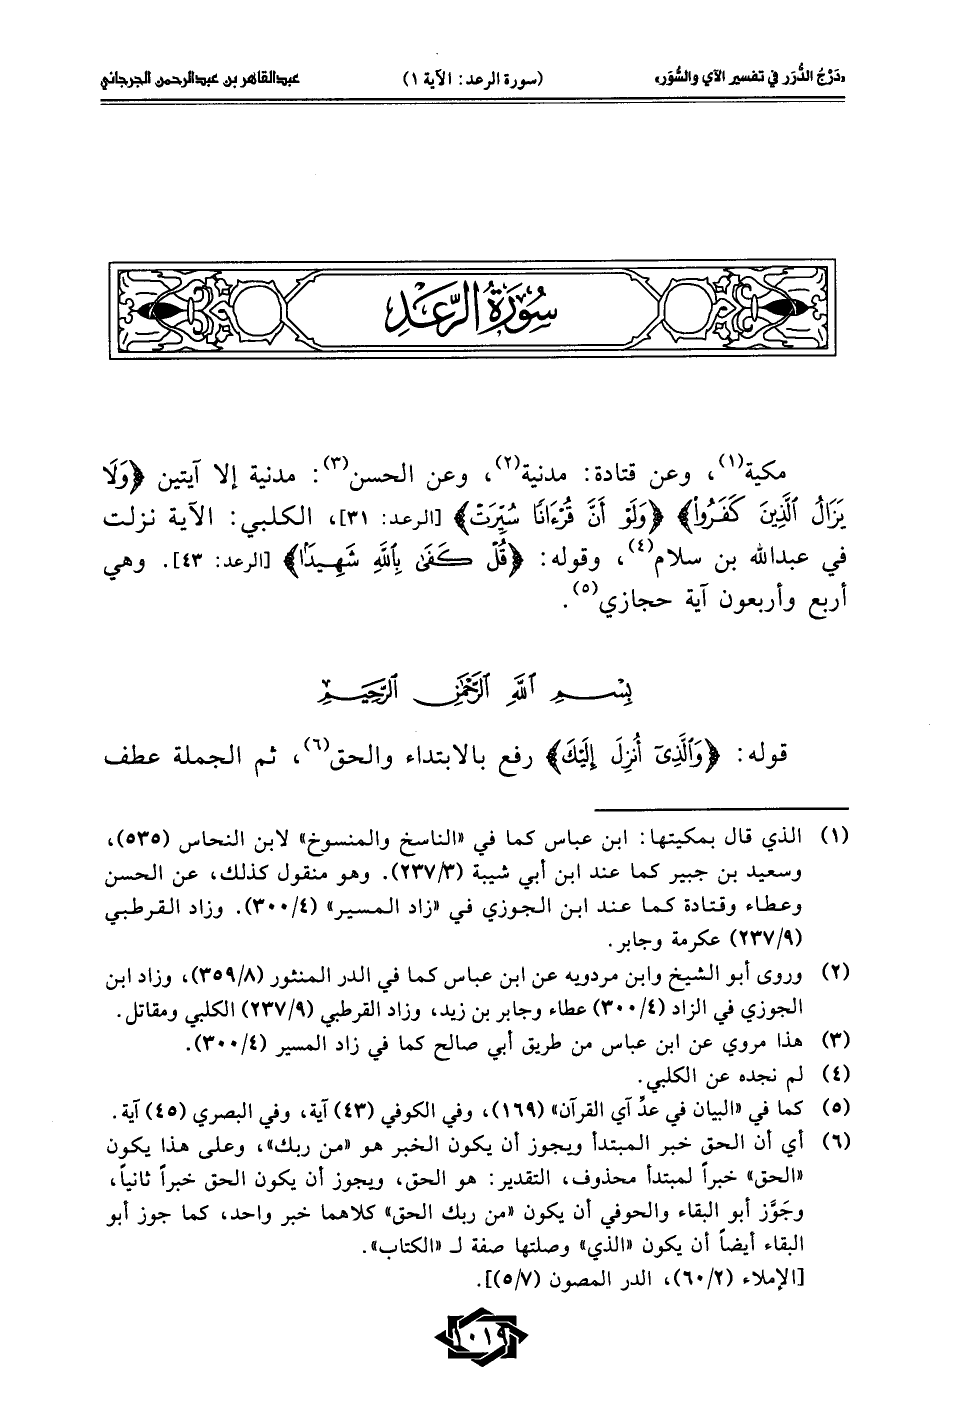 «دَرْجُ الدُّرَر في تفسير الآي والسُّوَر» (سورة الرعد: الآية ١) عبدالقاهر بن عبدالرحمن الجرجاني
سُورَةُ الرَّعَدِ
مكية(١)، وعن قتادة: مدنية(٢)، وعن الحسن(٣): مدنية إلا آيتين ﴿وَلَا
يَزَالُ ٱلَّذِينَ كَفَرُواْ﴾ ﴿وَلَوْ أَنَّ قُرْءَانًا سُيِّرَتْ﴾ [الرعد: ٣١]، الكلبي: الآية نزلت
في عبدالله بن سلام(٤)، وقوله: ﴿قُلْ كَفَىٰ بِٱللَّهِ شَهِيدًا﴾ [الرعد: ٤٣]. وهي
أربع وأربعون آية حجازي(٥).
بِسْمِ ٱللَّهِ ٱلرَّحْمَٰنِ ٱلرَّحِيمِ
قوله: ﴿وَٱلَّذِىٓ أُنزِلَ إِلَيْكَ﴾ رفع بالابتداء والحق(٦)، ثم الجملة عطف
(١) الذي قال بمكيتها: ابن عباس كما في «الناسخ والمنسوخ» لابن النحاس (٥٣٥)،
وسعيد بن جبير كما عند ابن أبي شيبة (٢٣٧/٣). وهو منقول كذلك، عن الحسن
وعطاء وقتادة كما عند ابن الجوزي في «زاد المسير» (٣٠٠/٤). وزاد القرطبي
(٢٣٧/٩) عكرمة وجابر.
(٢) وروى أبو الشيخ وابن مردويه عن ابن عباس كما في الدر المنثور (٣٥٩/٨)، وزاد ابن
الجوزي في الزاد (٣٠٠/٤) عطاء وجابر بن زيد، وزاد القرطبي (٢٣٧/٩) الكلبي ومقاتل.
(٣) هذا مروي عن ابن عباس من طريق أبي صالح كما في زاد المسير (٣٠٠/٤).
(٤) لم نجده عن الكلبي.
(٥) كما في «البيان في عدِّ آي القرآن» (١٦٩)، وفي الكوفي (٤٣) آية، وفي البصري (٤٥) آية.
(٦) أي أن الحق خبر المبتدأ ويجوز أن يكون الخبر هو «من ربك»، وعلى هذا يكون
«الحق» خبراً لمبتدأ محذوف، التقدير: هو الحق، ويجوز أن يكون الحق خبراً ثانياً،
وجَوَّز أبو البقاء والحوفي أن يكون «من ربك الحق» كلاهما خبر واحد، كما جوز أبو
البقاء أيضاً أن يكون «الذي» وصلتها صفة لـ «الكتاب».
[الإملاء (٦٠/٢)، الدر المصون (٥/٧)].
١٠١٩